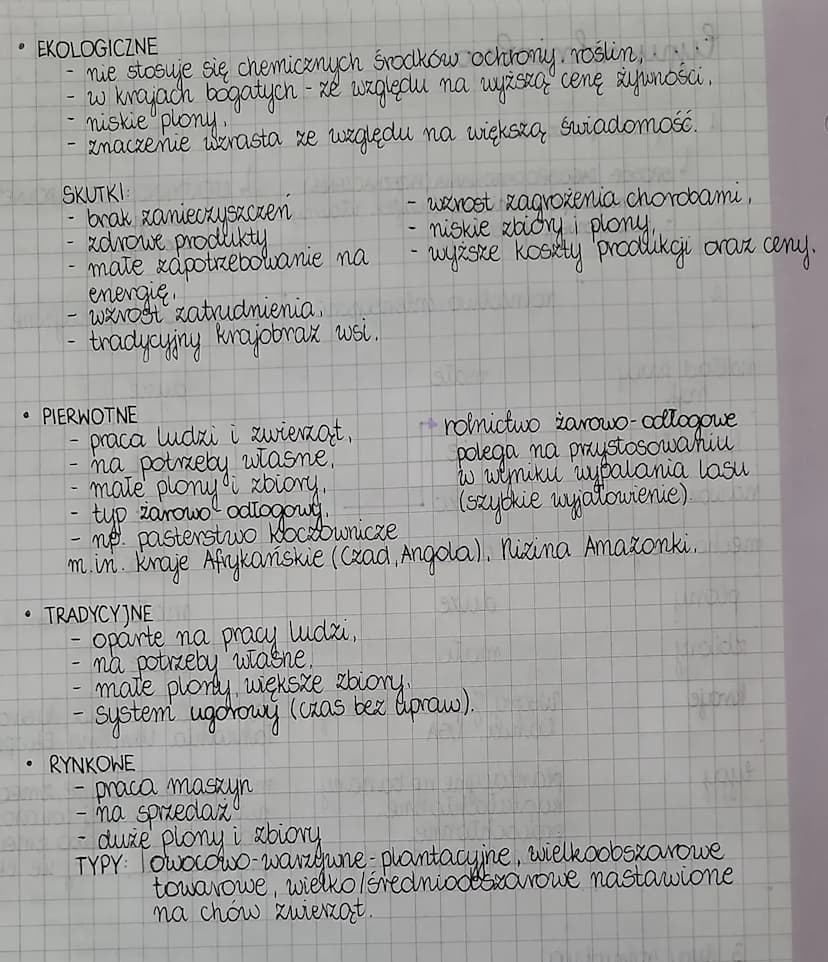 • EKOLOGICZNE
- nie stosuje się chemicznych środków ochrony roślin,
- w krajach bogatych - ze względu na wyższą cenę żywności,
- niskie plony,
- znaczenie wzrasta ze względu na większą świadomość.
SKUTKI:
- brak zanieczyszczeń
- zdrowe produkty
- małe zapotrzebowanie na
energię,
- wzrost zatrudnienia,
- tradycyjny krajobraz wsi.
- wzrost zagrożenia chorobami,
- niskie zbiory i plony,
- wyższe koszty produkcji oraz ceny.
• PIERWOTNE
- praca ludzi i zwierząt,
- na potrzeby własne,
- małe plony i zbiory,
- typ żarowo odłogowy,
- np. pasterstwo koczownicze
m.in. kraje Afrykańskie (Czad, Angola), Nizina Amazonki.
rolnictwo żarowo-odłogowe
polega na przystosowaniu
w wyniku wypalania lasu
(szybkie wyjałowienie).
• TRADYCYJNE
- oparte na pracy ludzi,
- na potrzeby własne,
- małe plony, większe zbiory,
- system ugorowy (czas bez upraw).
• RYNKOWE
- praca maszyn
- na sprzedaż
- duże plony i zbiory
TYPY: owocowo-warzywne-plantacyjne, wielkoobszarowe
towarowe, wielko/średnioobszarowe nastawione
na chów zwierząt.